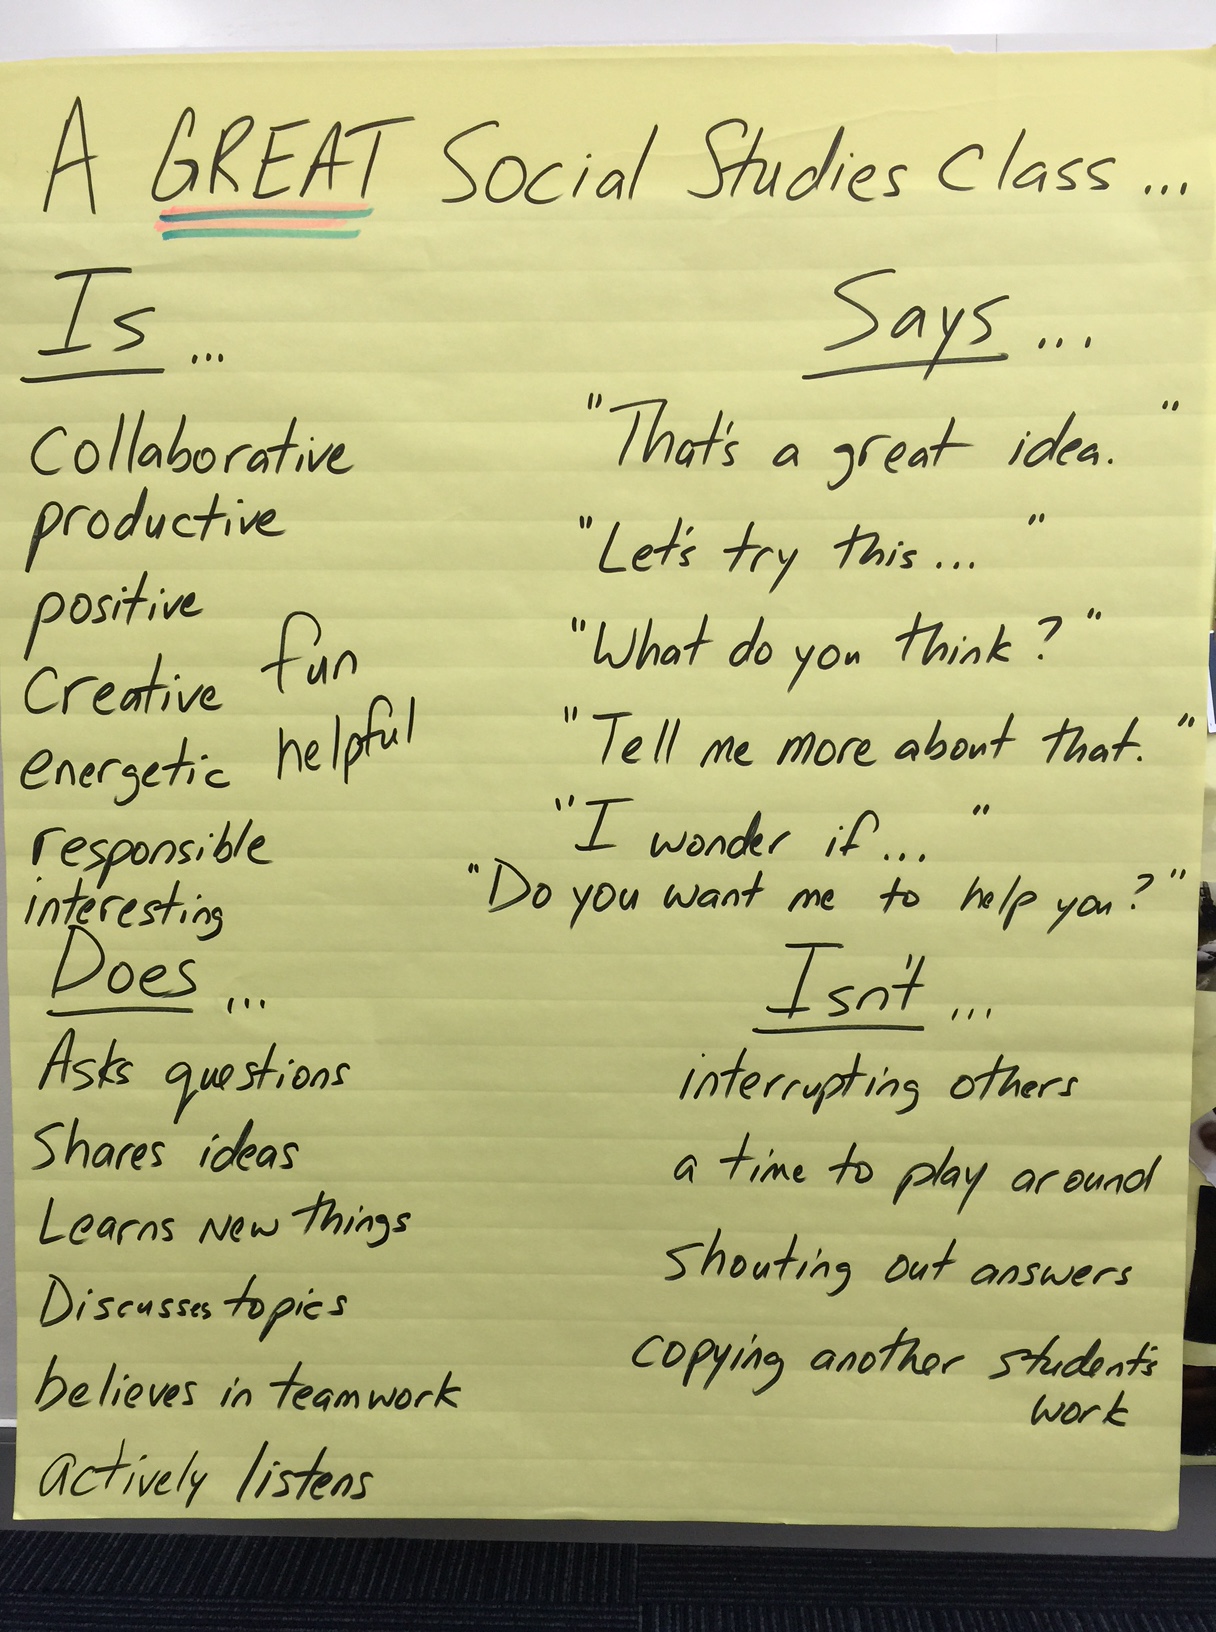 A GREAT Social Studies Class ...
Is ...
Collaborative
productive
positive
Creative fun
energetic helpful
responsible
interesting
Says ...
"That's a great idea."
"Let's try this... "
"What do you think?"
"Tell me more about that."
"I wonder if... "
"Do you want me to help you?"
Does ...
Asks questions
Shares ideas
Learns New things
Discusses topics
believes in teamwork
actively listens
Isn't ...
interrupting others
a time to play around
shouting out answers
copying another student's
work